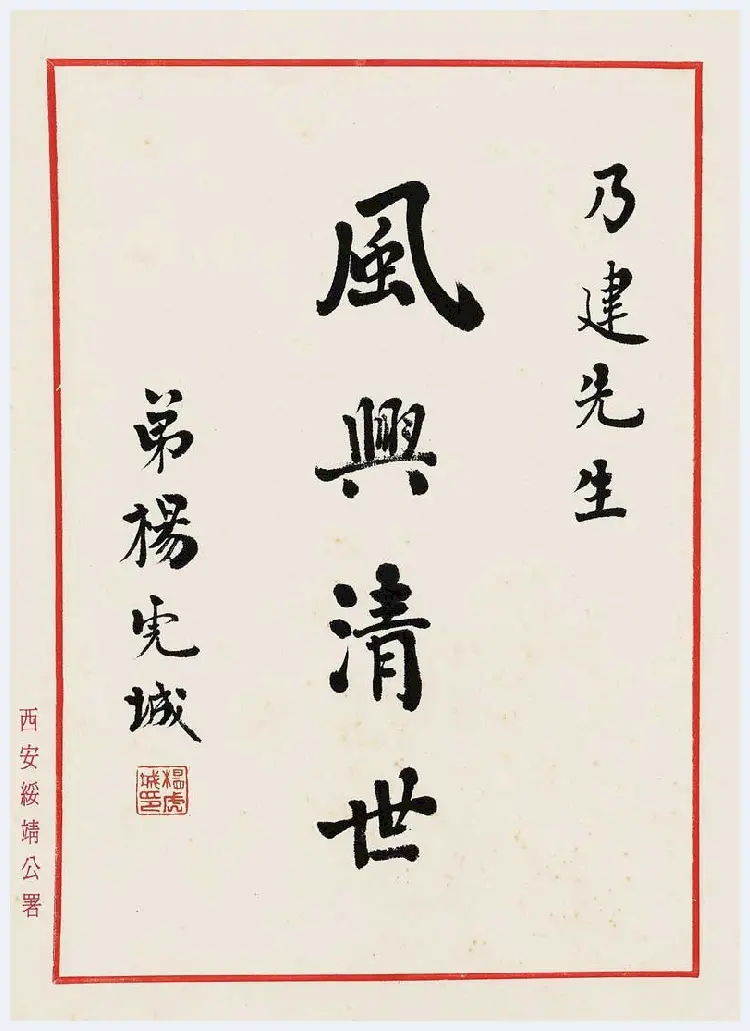 乃建先生
風興清世
弟楊虎城
楊虎城印
西安綏靖公署